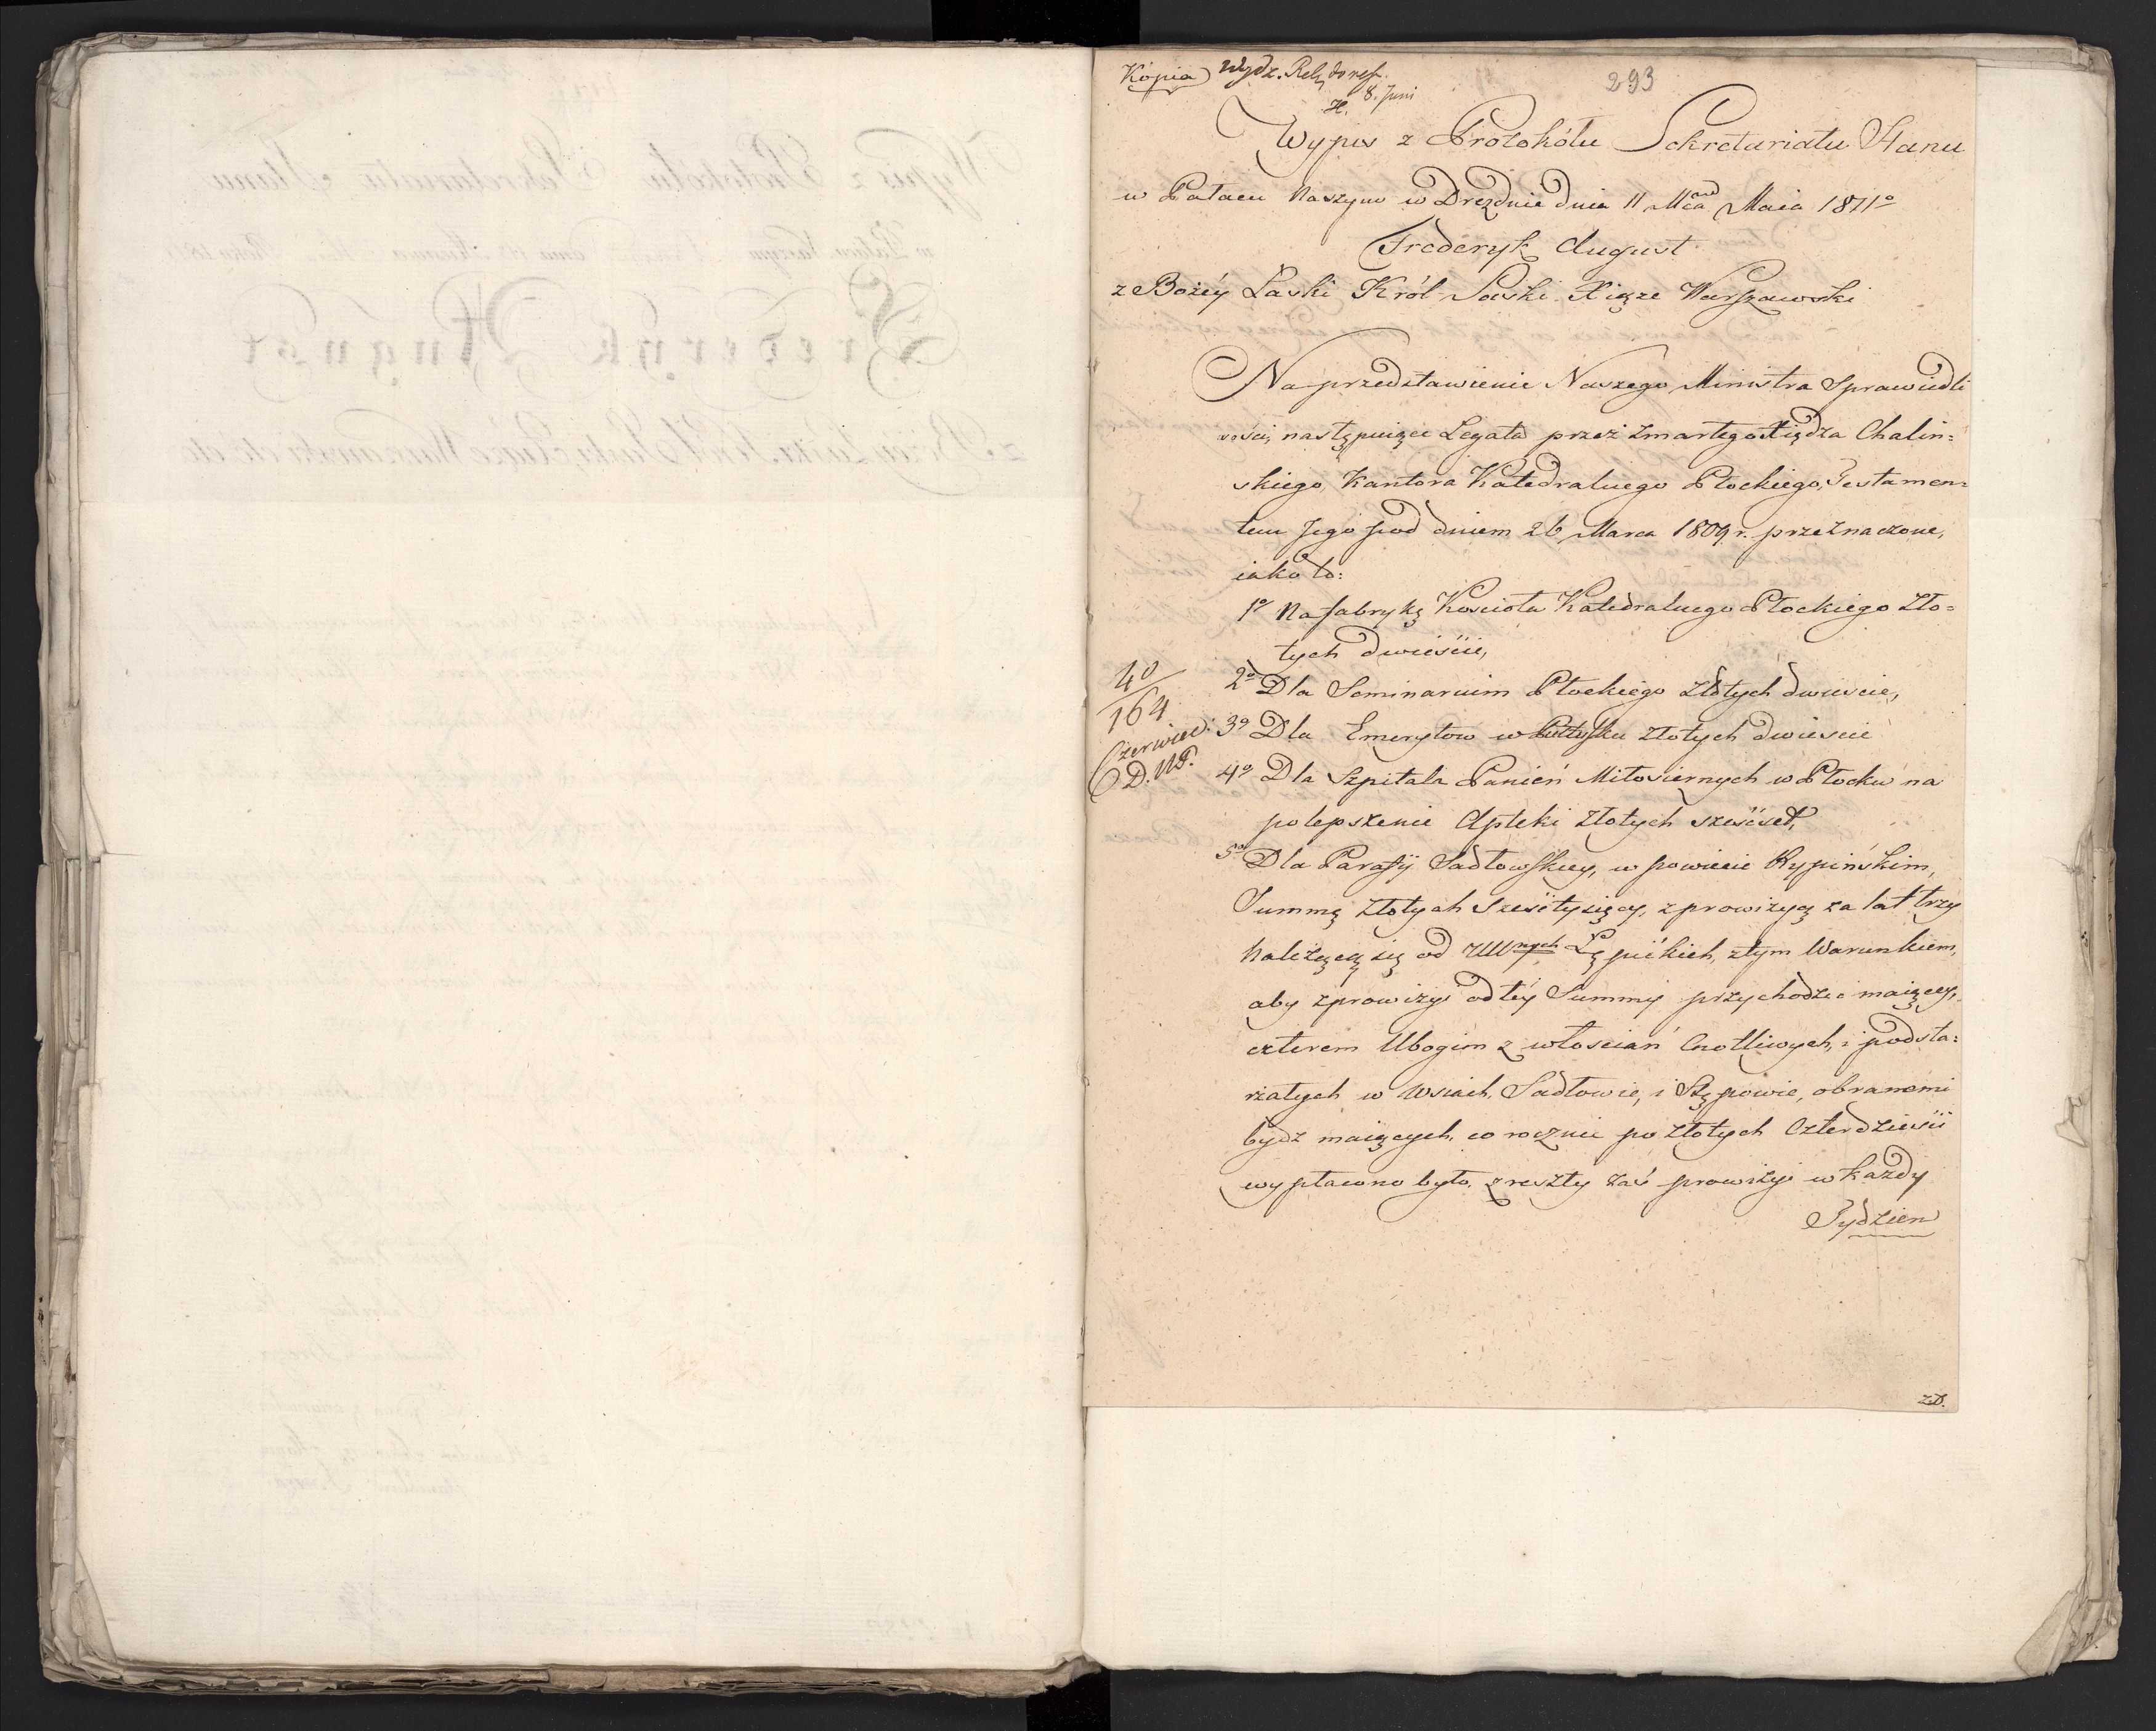 Kópia Wydz. Relg do ref.
H. 8. Juni
293
Wypis z Protokółu Sekretariatu Stanu
w Pałacu Naszym w Dreznie dnia 11 Mca Maia 1811o
Frederyk August
z Bożéy Łaski Król Saski Xiąże Warszawski
Na przedstawienie Naszego Ministra Sprawiedli
wości, następuiące Legata przez zmarłego Xiędza Chalin=
skiego, Kantora Katedralnego Płockiego, Testamen=
tem Jego pod dniem 26 Marca 1809 r. przeznaczone,
iako to:
1o Na fabrykę Kościoła Katedralnego Płockiego Zło=
tych dwieście,
2o Dla Seminarium Płockiego złotych dwieście,
3o Dla Emerytow w Pułtusku Złotych dwieście
4o Dla Szpitala Panień Miłosiernych w Płocku na
polepszenie Apteki złotych sześćset,
5o Dla Parafij Sadłowskiey, w powiecie Rypińskim,
Summę złotych sześćtysięcy, z prowizyą za lat trzy
należącą się od WWnych Łępickich, z tym Warunkiem,
aby z prowizyi od téy Summy przychodzić maiącey,
czterem Ubogim z włościań Cnotliwych, i podsta=
rzałych w Wsiach, Sadłowie, i Stępowie, obranemi
bydz maiących, co rocznie po złotych Czterdzieści
wypłacono było, z reszty zaś prowizyi w każdy
Tydzien
40
/164
Czerwiec:
D. W.P.
z D.